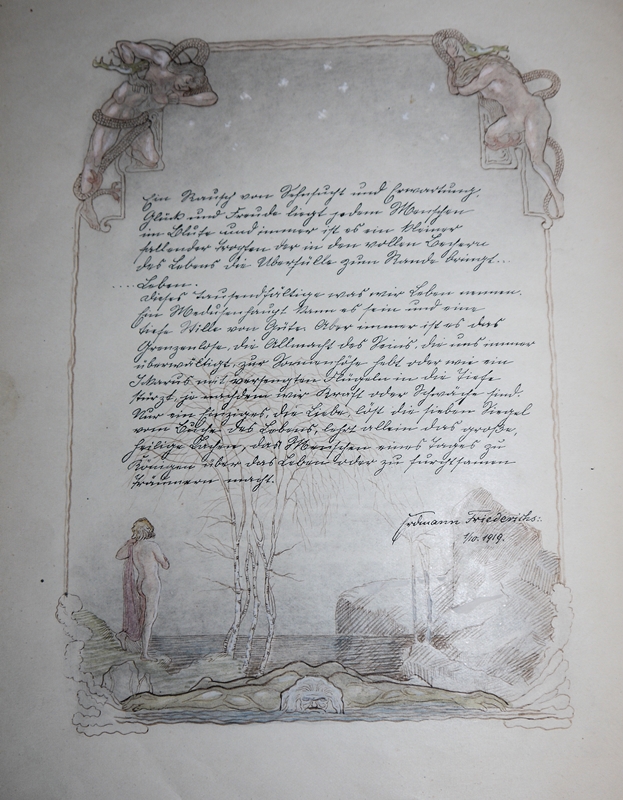 Ein Rausch von Sehnsucht und Erwartung,
Glück und Freude liegt jedem Menschen
im Blute und immer ist es ein kleiner
fallender Tropfen der in den vollen Bechern
des Lebens die Überfülle zum Rande bringt...
.... Leben.
Dieses tausendfältige was wir Leben nennen.
Ein Medusenhaupt kann es sein und eine
tiefe Stille von Güte. Aber immer ist es das
Grenzenlose, die Allmacht des Seins, die uns immer
überwältigt, zur Sonnenhöhe hebt oder wie ein
Ikarus mit versengten Flügeln in die Tiefe
stürzt, je nachdem wir Kraft oder Schwäche sind.
Nur ein Einziges, die Liebe, löst die sieben Siegel
vom Buche des Lebens, lehrt allein das große,
heilige Lachen, das Menschen eines Tages zu
Königen über das Leben oder zu furchtsamen
Träumern macht.
Erdmann Friederichs.
1/10. 1919.